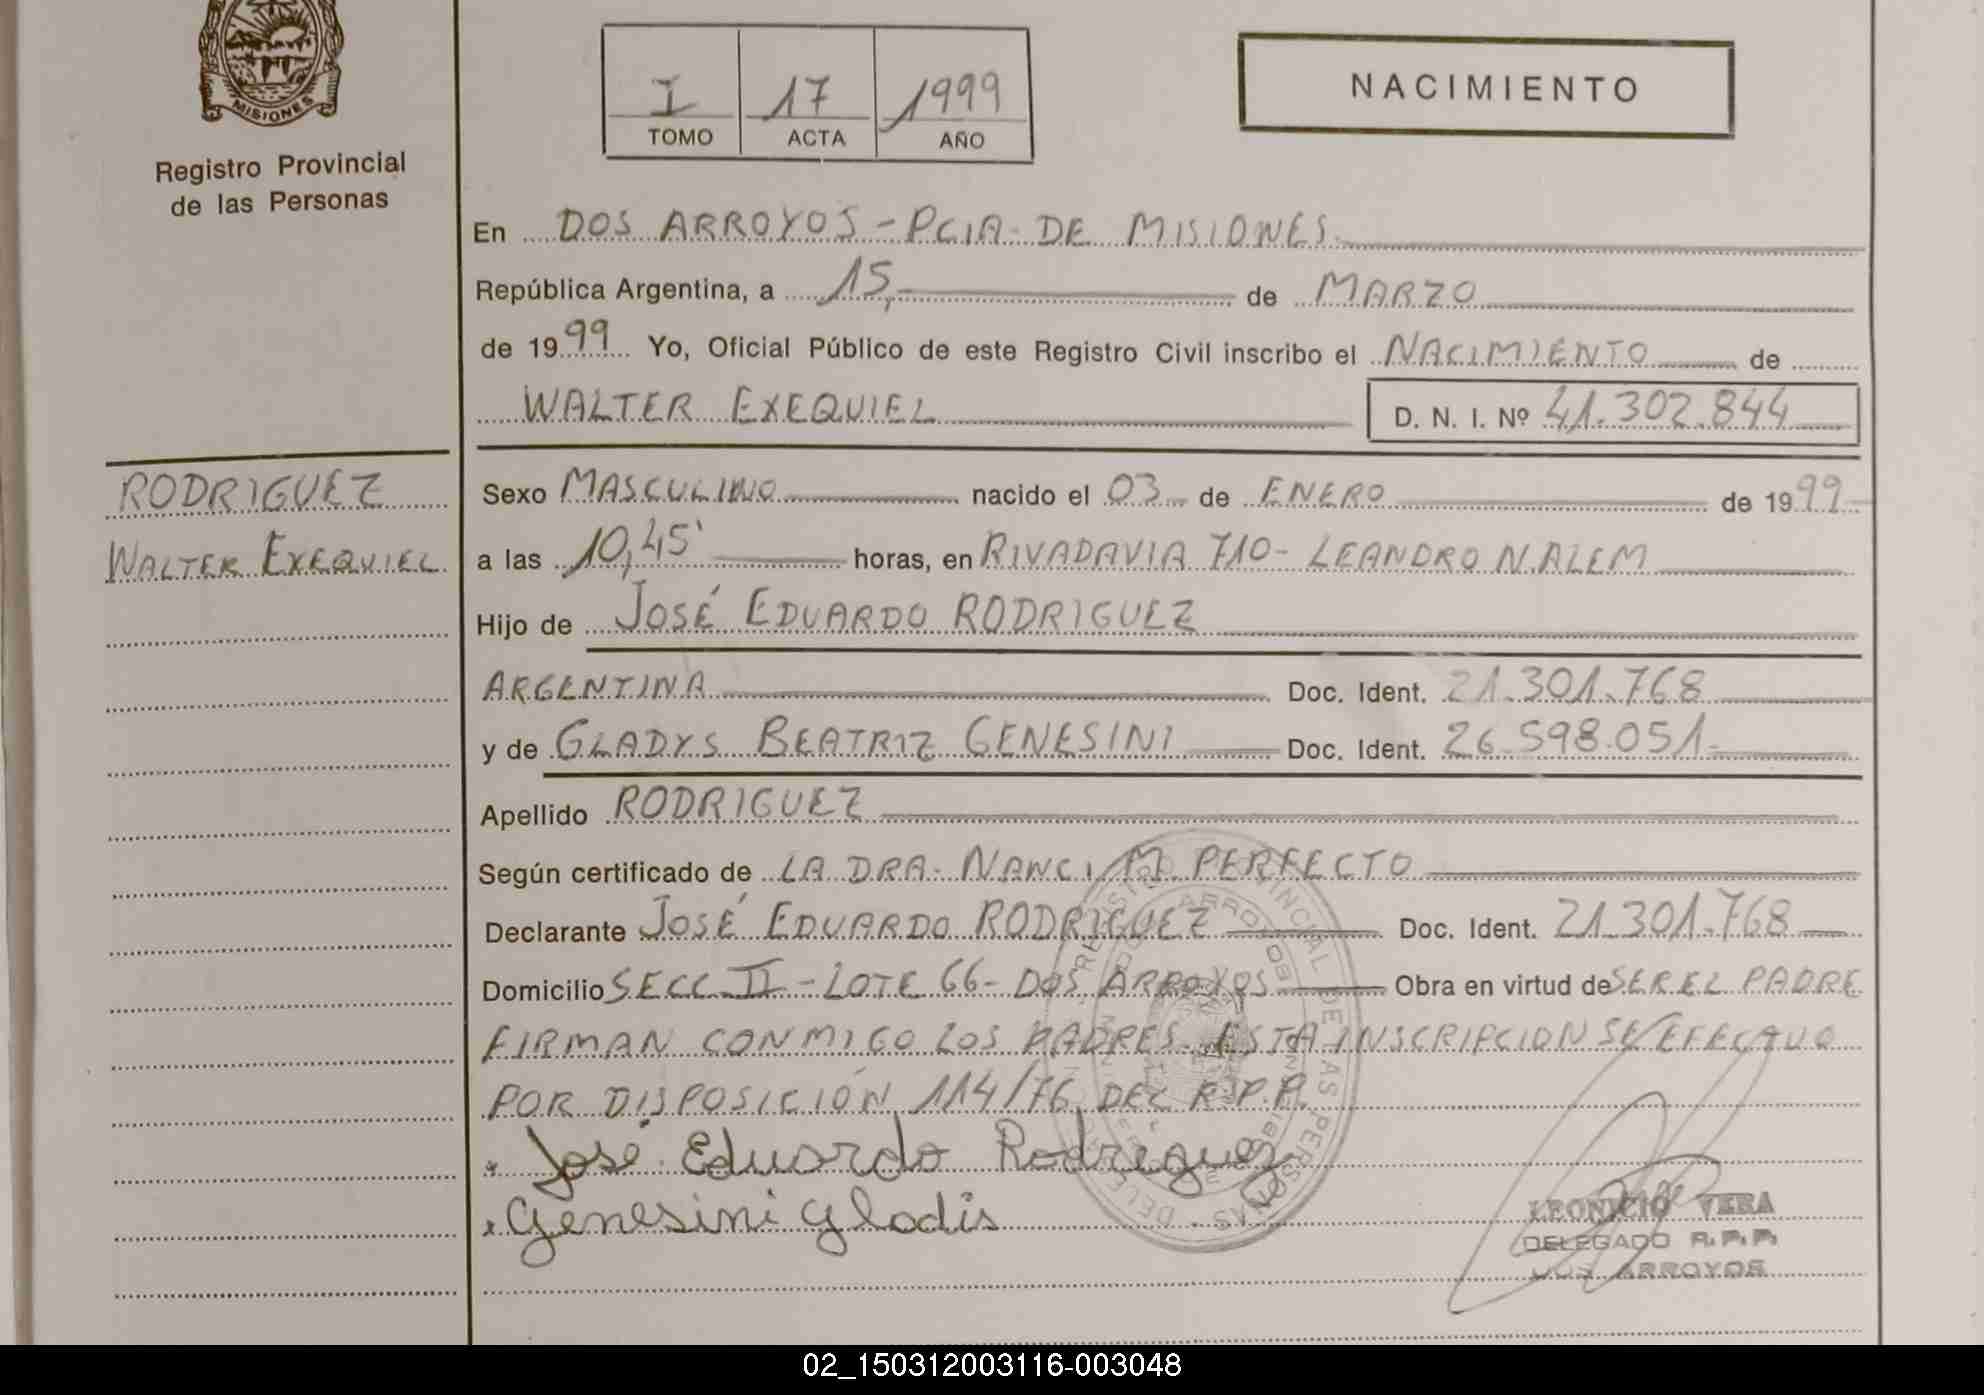 MISIONES
Registro Provincial
de las Personas
I 17 1999
TOMO ACTA AÑO
NACIMIENTO
En DOS ARROYOS - PCIA. DE MISIONES.
República Argentina, a 15, de MARZO
de 1999 Yo, Oficial Público de este Registro Civil inscribo el NACIMIENTO de
WALTER EXEQUIEL D. N. I. Nº 41.302.844
RODRIGUEZ
WALTER EXEQUIEL
Sexo MASCULINO nacido el 03 de ENERO de 1999
a las 10,45' horas, en RIVADAVIA 710 - LEANDRO N. ALEM
Hijo de JOSÉ EDUARDO RODRIGUEZ
ARGENTINA Doc. Ident. 21.301.768
y de GLADYS BEATRIZ GENESINI Doc. Ident. 26.598.051.
Apellido RODRIGUEZ
Según certificado de LA DRA. NANCI M. PERFECTO
Declarante JOSÉ EDUARDO RODRIGUEZ Doc. Ident. 21.301.768
Domicilio SECC. II - LOTE 66 - DOS ARROYOS Obra en virtud de SER EL PADRE
FIRMAN CONMIGO LOS PADRES. ESTA INSCRIPCION SE EFECTUO
POR DISPOSICIÓN 114/76 DEL R.P.P.
José Eduardo Rodriguez
Genesini Gladis
LEONICIO VERA
DELEGADO R.P.P.
DOS ARROYOS
02_150312003116-003048